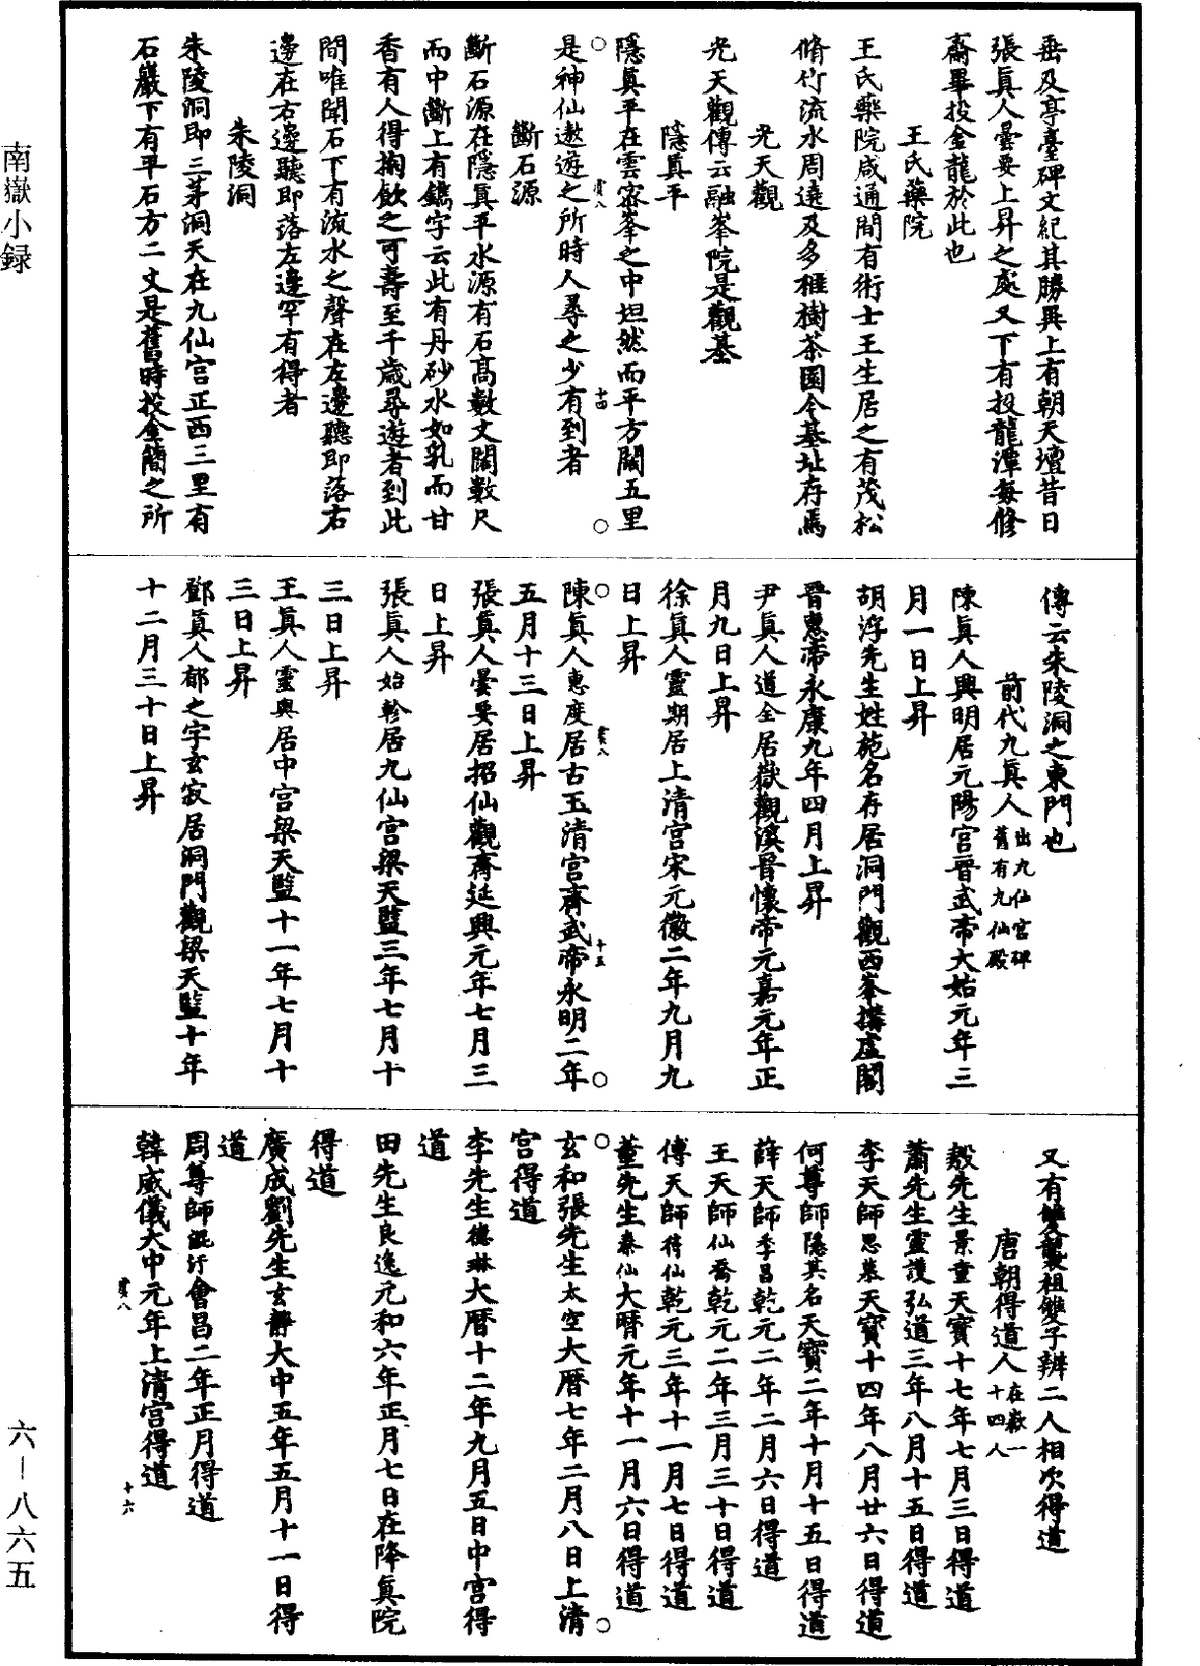 岳及亭臺碑文紀其勝異上有朝天壇昔日
張眞人曇要上昇之處又下有投龍潭每修
齋畢投金龍於此也
王氏藥院
王氏藥院咸通間有術士王生居之有茂松
脩竹流水周遶及多榧樹茶園今基址存焉
光天觀
光天觀傳云融峯院是觀基
隱眞平
隱眞平在雲密峯之中坦然而平方闊五里
是神仙遨遊之所時人尋之少有到者
斷石源
斷石源在隱眞平水源有石高數丈闊數尺
而中斷上有鐫字云此有丹砂水如乳而甘
香有人得掬飲之可壽至千歲尋遊者到此
間唯聞石下有流水之聲在左邊聽即落右
邊在右邊聽即落左邊罕有得者
朱陵洞
朱陵洞即三茅洞天在九仙宮正西三里有
石巖下有平石方二丈是舊時投金簡之所
傳云朱陵洞之東門也
前代九眞人出九仙宮碑舊有九仙殿
陳眞人興明居元陽宮晉武帝大始元年三
月一日上昇
胡浮先生姓施名存居洞門觀西峯搆虛閣
晉惠帝永康九年四月上昇
尹眞人道全居嶽觀溪晉懷帝元嘉元年正
月九日上昇
徐眞人靈期居上清宮宋元徽二年九月九
日上昇
陳眞人惠度居古玉清宮齊武帝永明二年
五月十三日上昇
張眞人曇要居招仙觀齊延興元年七月三
日上昇
張眞人始軫居九仙宮梁天監三年七月十
三日上昇
王眞人靈輿居中宮梁天監十一年七月十
三日上昇
鄧眞人郁之字玄寂居洞門觀梁天監十年
十二月三十日上昇
又有雙襲祖雙子辨二人相次得道
唐朝得道人在嶽一十四人
殷先生景童天寶十七年七月三日得道
蕭先生靈護弘道三年八月十五日得道
李天師思慕天寶十四年八月廿六日得道
何尊師隱其名天寶二年十月十五日得道
薛天師季昌乾元二年二月六日得道
王天師仙喬乾元二年三月三十日得道
傅天師待仙乾元三年十一月七日得道
董先生奉仙大曆元年十一月六日得道
玄和張先生太空大曆七年二月八日上清
宮得道
李先生德琳大曆十二年九月五日中宮得
道
田先生良逸元和六年正月七日在降眞院
得道
廣成劉先生玄靜大中五年五月十一日得
道
周尊師混汙會昌二年正月得道
韓威儀大中元年上清宮得道
十四
十五
十六
南嶽小録
六－八六五